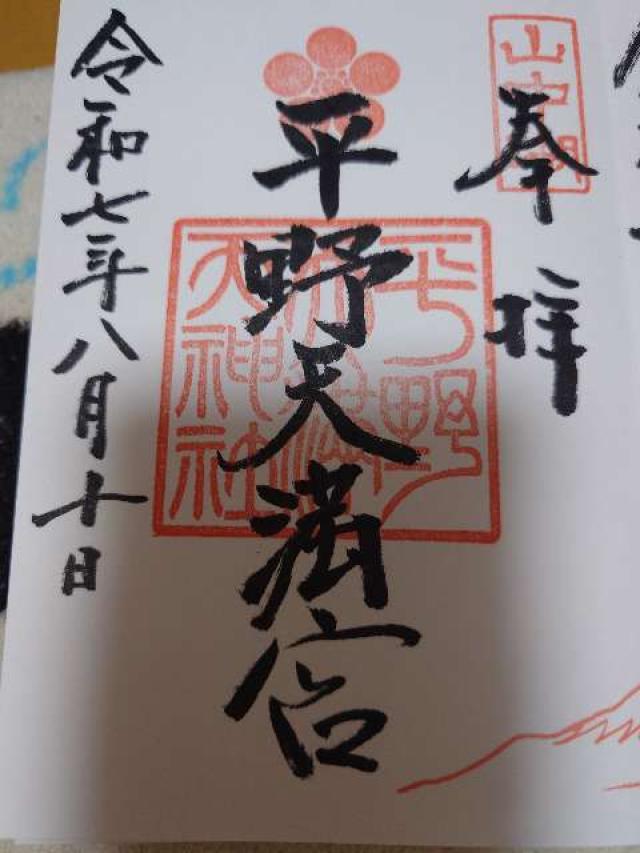 山中湖
奉拝
平野天満宮
平野
天満
天神社
令和七年八月十日